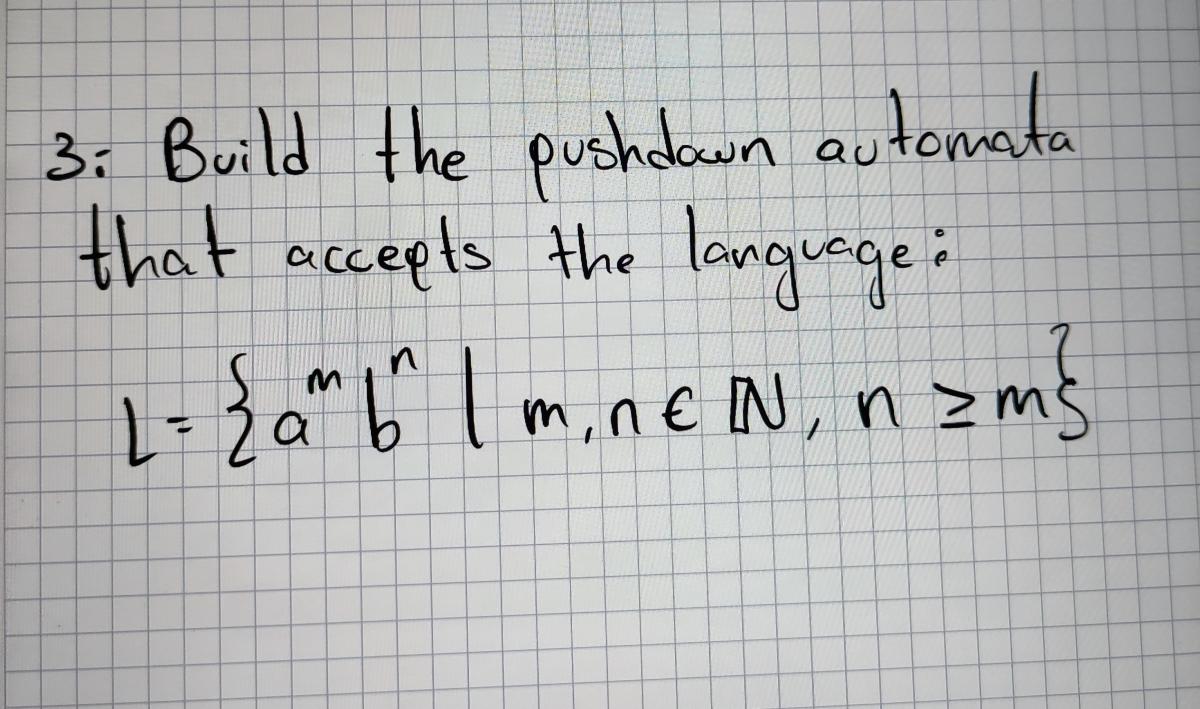 3: Build the pushdown automata
that accepts the language:
L = {a^m b^n | m, n ∈ ℕ, n ≥ m}